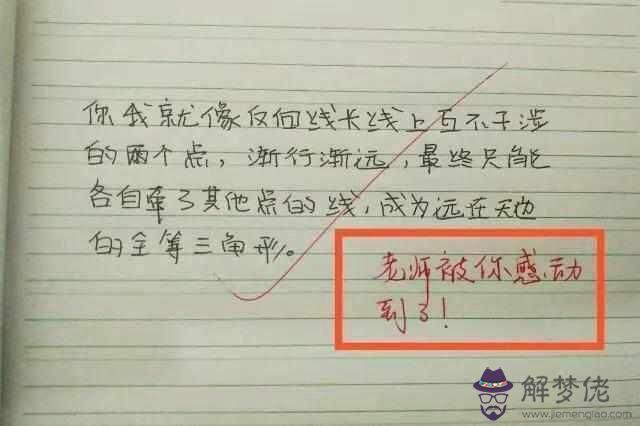 你我就像反向线长线上互不干涉
的两个点，渐行渐远，最终只能
各自牵了其他点的线，成为远在天边
的全等三角形。
老师被你感动
到了！
解梦佬
www.jiemenglao.com